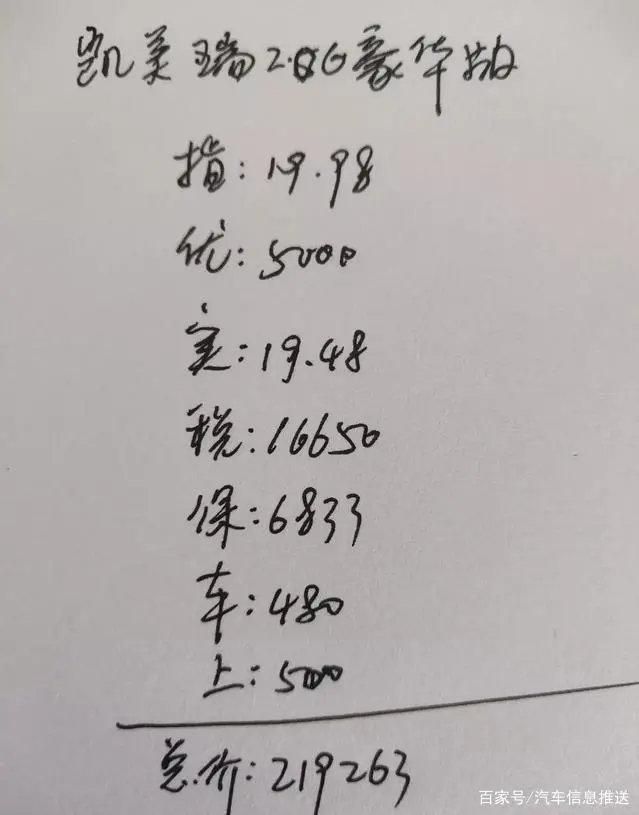 凯美瑞2.0G豪华版
指:19.98
优:5000
实:19.48
税:16650
保:6833
车:480
上:500
总价:219263
百家号/汽车信息推送